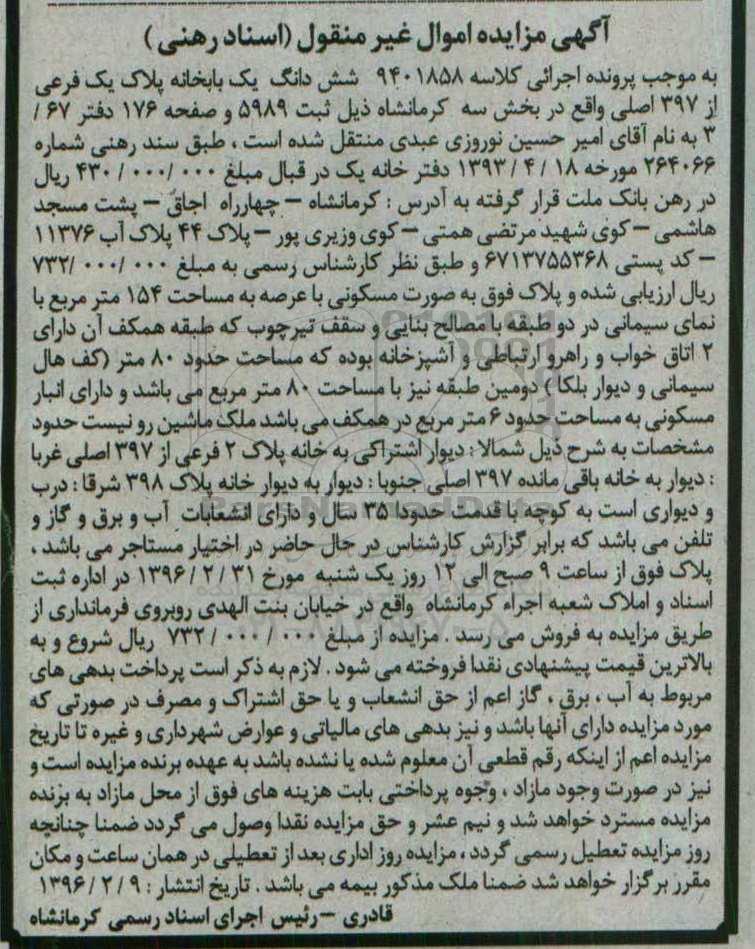 آگهی مزایده اموال غیر منقول (اسناد رهنی)
به موجب پرونده اجرائی کلاسه ۹۴۰۱۸۵۸ شش دانگ یک بابخانه پلاک یک فرعی
از ۳۹۷ اصلی واقع در بخش سه کرمانشاه ذیل ثبت ۵۹۸۹ و صفحه ۱۷۶ دفتر ۶۷/
۳ به نام آقای امیر حسین نوروزی عبدی منتقل شده است ، طبق سند رهنی شماره
۲۶۴۰۶۶ مورخه ۱۸ / ۴ / ۱۳۹۳ دفتر خانه یک در قبال مبلغ ۴۳۰/۰۰۰/۰۰۰ ریال
در رهن بانک ملت قرار گرفته به آدرس : کرمانشاه – چهارراه اجاق – پشت مسجد
هاشمی – کوی شهید مرتضی همتی – کوی وزیری پور – پلاک ۴۴ پلاک آب ۱۱۳۷۶
– کد پستی ۶۷۱۳۷۵۵۳۶۸ و طبق نظر کارشناس رسمی به مبلغ ۷۳۲/۰۰۰/۰۰۰
ریال ارزیابی شده و پلاک فوق به صورت مسکونی با عرصه به مساحت ۱۵۴ متر مربع با
نمای سیمانی در دو طبقه با مصالح بنایی و سقف تیرچوب که طبقه همکف آن دارای
۲ اتاق خواب و راهرو ارتباطی و آشپزخانه بوده که مساحت حدود ۸۰ متر (کف هال
سیمانی و دیوار بلکا) دومین طبقه نیز با مساحت ۸۰ متر مربع می باشد و دارای انبار
مسکونی به مساحت حدود ۶ متر مربع در همکف می باشد ملک ماشین رو نیست حدود
مشخصات به شرح ذیل شمالا : دیوار اشتراکی به خانه پلاک ۲ فرعی از ۳۹۷ اصلی غربا
: دیوار به خانه باقی مانده ۳۹۷ اصلی جنوبا : دیوار به دیوار خانه پلاک ۳۹۸ شرقا : درب
و دیواری است به کوچه با قدمت حدودا ۳۵ سال و دارای انشعابات آب و برق و گاز و
تلفن می باشد که برابر گزارش کارشناس در حال حاضر در اختیار مستاجر می باشد ،
پلاک فوق از ساعت ۹ صبح الی ۱۲ روز یک شنبه مورخ ۳۱ / ۲ / ۱۳۹۶ در اداره ثبت
اسناد و املاک شعبه اجراء کرمانشاه واقع در خیابان بنت الهدی روبروی فرمانداری از
طریق مزایده به فروش می رسد . مزایده از مبلغ ۷۳۲/۰۰۰/۰۰۰ ریال شروع و به
بالاترین قیمت پیشنهادی نقدا فروخته می شود . لازم به ذکر است پرداخت بدهی های
مربوط به آب ، برق ، گاز اعم از حق انشعاب و یا حق اشتراک و مصرف در صورتی که
مورد مزایده دارای آنها باشد و نیز بدهی های مالیاتی و عوارض شهرداری و غیره تا تاریخ
مزایده اعم از اینکه رقم قطعی آن معلوم شده یا نشده باشد به عهده برنده مزایده است و
نیز در صورت وجود مازاد ، وجوه پرداختی بابت هزینه های فوق از محل مازاد به برنده
مزایده مسترد خواهد شد و نیم عشر و حق مزایده نقدا وصول می گردد ضمنا چنانچه
روز مزایده تعطیل رسمی گردد ، مزایده روز اداری بعد از تعطیلی در همان ساعت و مکان
مقرر برگزار خواهد شد ضمنا ملک مذکور بیمه می باشد . تاریخ انتشار : ۱۳۹۶/۲/۹
قادری – رئیس اجرای اسناد رسمی کرمانشاه